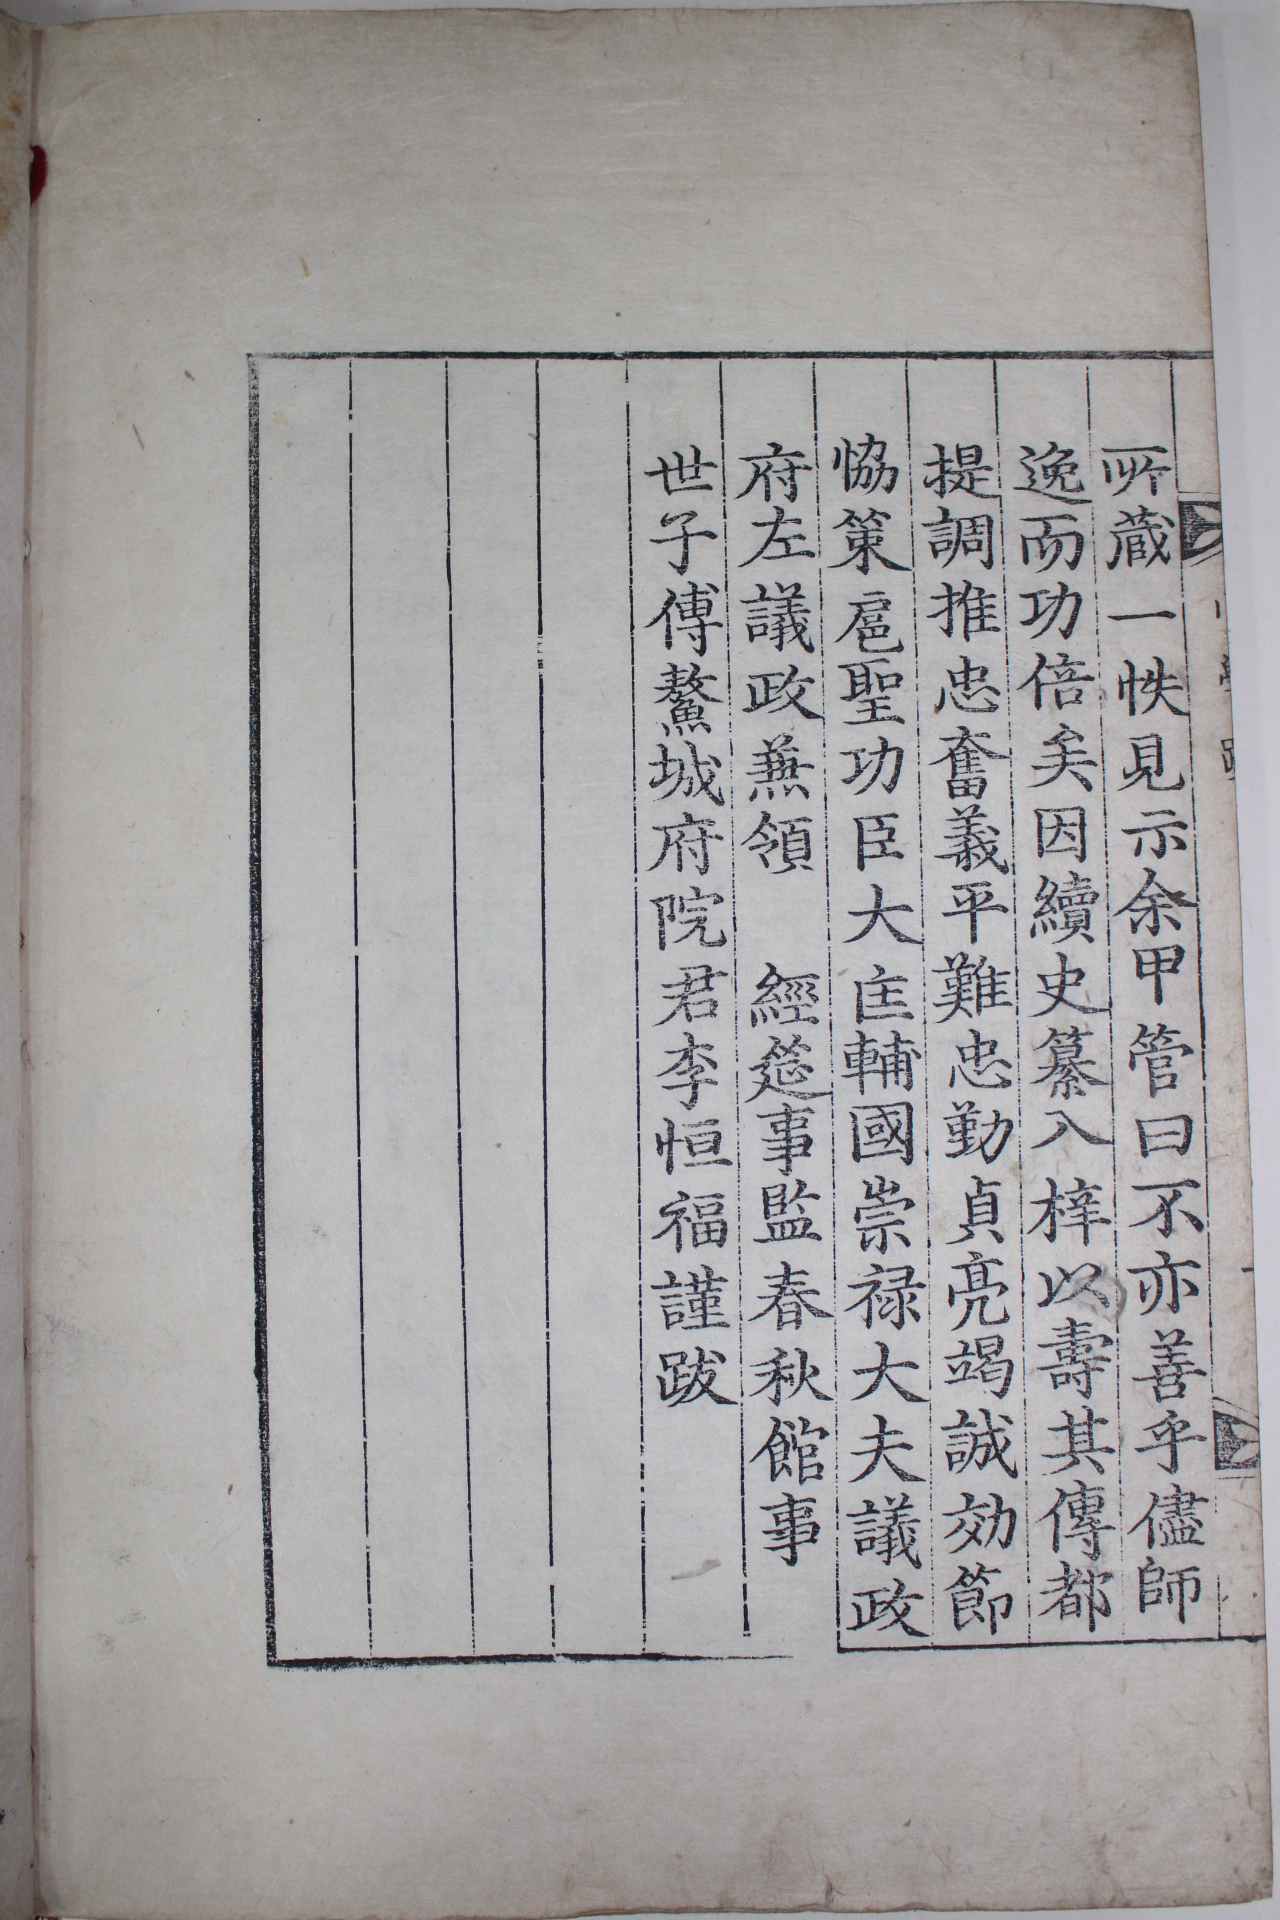 所蔵一帙見示余甲管曰不亦善乎儘師
逸而功倍矣因續史纂入梓以壽其傳都
提調推忠奮義平難忠勤貞亮竭誠効節
恊策扈聖功臣大匡輔國崇禄大夫議政
府左議政兼領　經筵事監春秋館事
世子傅鰲城府院君李恒福謹跋